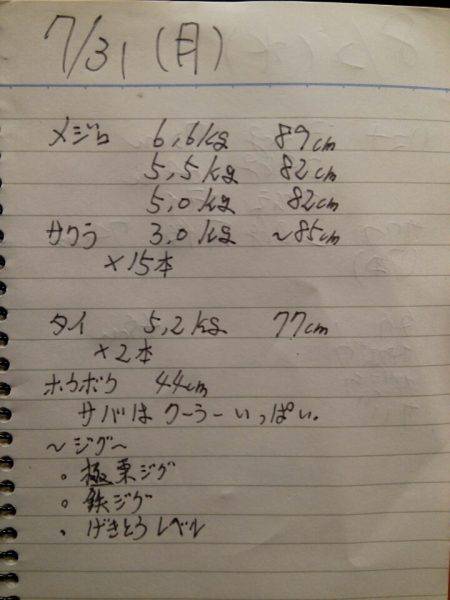 7/31(月)
メジロ 6,6kg 89cm
5,5kg 82cm
5,0kg 82cm
サワラ 3.0kg ~85cm
×15本
タイ 5,2kg 77cm
×2本
ホウボウ 44cm
サバは クーラーいっぱい.
~ジグ~
。極栗ジグ
。鉄ジグ
。げきとろレベル